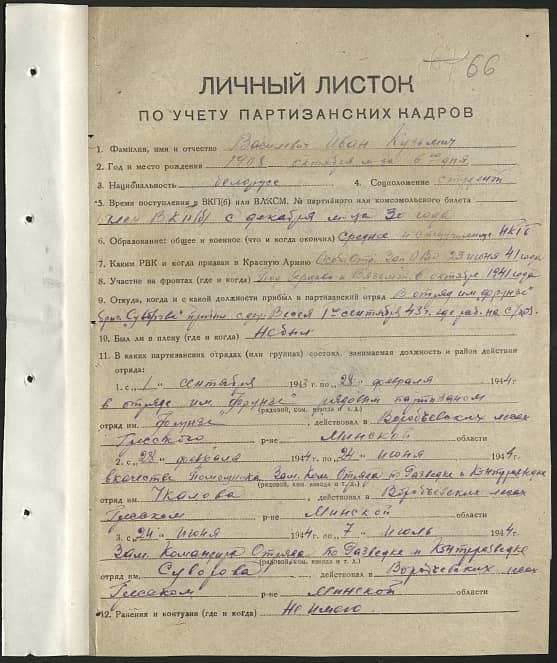 66
ЛИЧНЫЙ ЛИСТОК
ПО УЧЕТУ ПАРТИЗАНСКИХ КАДРОВ
1. Фамилия, имя и отчество Василевич Иван Кузьмич
2. Год и место рождения 1908 октября м-ца 6го дня
3. Национальность белорус 4. Соцположение студент
5. Время поступления в ВКП(б) или ВЛКСМ, № партийного или комсомольского билета
член ВКП(б) с декабря м-ца 30 года
6. Образование: общее и военное (что и когда окончил) Среднее и НКГБ
7. Каким РВК и когда призван в Красную Армию Зап ОВО 23 июня 41 года
8. Участие на фронтах (где и когда) Под и Вязьмой в октябре 1941 года
9. Откуда, когда и с какой должности прибыл в партизанский отряд В отряд им. Фрунзе
бриг. Суворова пришел с дер. Весея 1го сентября 43 г. где раб. на с/хоз.
10. Был ли в плену (где и когда) Не был
11. В каких партизанских отрядах (или группах) состоял, занимаемая должность и район действия
отряда:
1. с „1" сентября 1943 г. по „28" февраля 1944 г.
в отряде им. „Фрунзе" рядовым партизаном
(рядовой, ком. взвода и т. д.)
отряд им. Фрунзе, действовал в Воробьевских лесах
Гресского р-не Минской области
2. с „28" февраля 1944 г. по „24" июня 1944 г.
в качестве Помощника Зам. Ком. Отряда по Разведке и Контрразведке
(рядовой, ком. взвода и т. д.)
отряд им. Чкалова, действовал в Воробьевских лесах
Гресском р-не Минской области
3. с „24" июня 1944 г. по „7" июль 1944 г.
Зам. Командира Отряда по Разведке и Контрразведке
(рядовой, ком. взвода и т. д.)
отряд им. Суворова, действовал в Воробьевских лесах
Гресском р-не Минской области
12. Ранения и контузии (где и когда) Не имею.